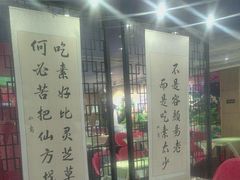 不是容颜易老
而是吃素太少
吃素好比灵芝草
何必苦把仙方